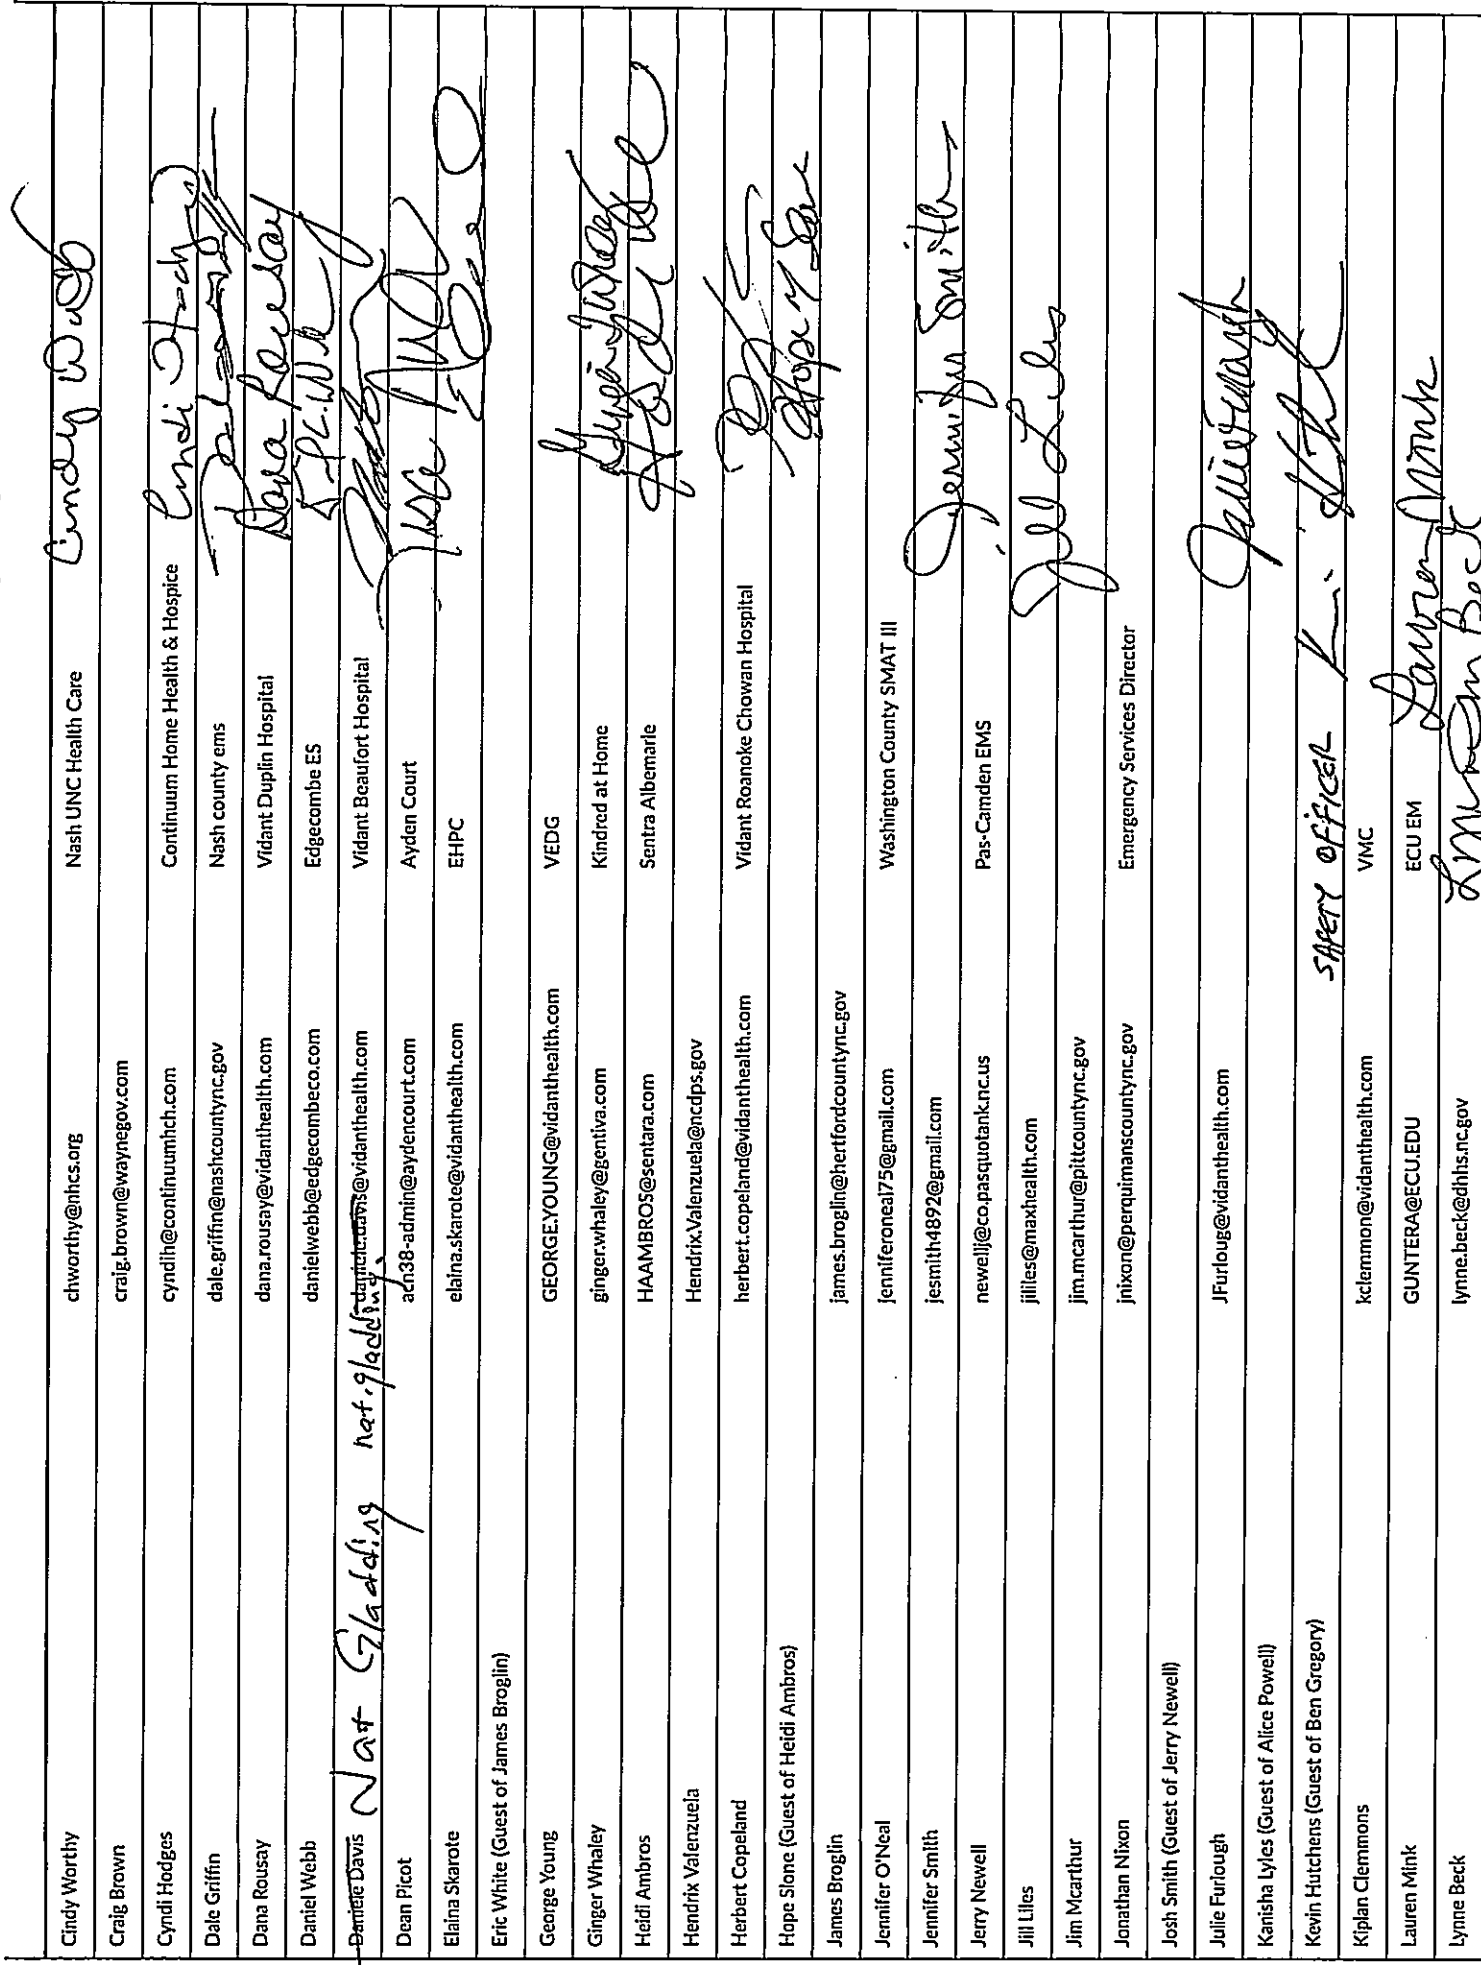 Cindy Worthy chworthy@nhcs.org Nash UNC Health Care Cindy
Craig Brown craig.brown@waynegov.com
Cyndi Hodges cyndih@continuumhch.com Continuum Home Health & Hospice
Dale Griffin dale.griffin@nashcountync.gov Nash county ems
Dana Rousay dana.rousay@vidanthealth.com Vidant Duplin Hospital Dana Rousay
Daniel Webb danielwebb@edgecombeco.com Edgecombe ES
Daniele Davis Nat Gladding nat.gladding daniele.davis@vidanthealth.com Vidant Beaufort Hospital
Dean Picot acn38-admin@aydencourt.com Ayden Court
Elaina Skarote elaina.skarote@vidanthealth.com EHPC
Eric White (Guest of James Broglin)
George Young GEORGE.YOUNG@vidanthealth.com VEDG
Ginger Whaley ginger.whaley@gentiva.com Kindred at Home Ginger Whaley
Heidi Ambros HAAMBROS@sentara.com Sentra Albemarle
Hendrix Valenzuela Hendrix.Valenzuela@ncdps.gov
Herbert Copeland herbert.copeland@vidanthealth.com Vidant Roanoke Chowan Hospital
Hope Slone (Guest of Heidi Ambros) Hope M Slone
James Broglin james.broglin@hertfordcountync.gov
Jennifer O'Neal jenniferoneal75@gmail.com Washington County SMAT III
Jennifer Smith jesmith4892@gmail.com Jennifer Smith
Jerry Newell newellj@co.pasquotank.nc.us Pas-Camden EMS
Jill Liles jililes@maxhealth.com Jill Liles
Jim Mcarthur jim.mcarthur@pittcountync.gov
Jonathan Nixon jnixon@perquimanscountync.gov Emergency Services Director
Josh Smith (Guest of Jerry Newell)
Julie Furlough JFurloug@vidanthealth.com Julie Furlough
Kanisha Lyles (Guest of Alice Powell)
Kevin Hutchens (Guest of Ben Gregory) SAFETY OFFICER
Kiplan Clemmons kclemmon@vidanthealth.com VMC
Lauren Mink GUNTERA@ECU.EDU ECU EM Lauren Mink
Lynne Beck lynne.beck@dhhs.nc.gov Beck